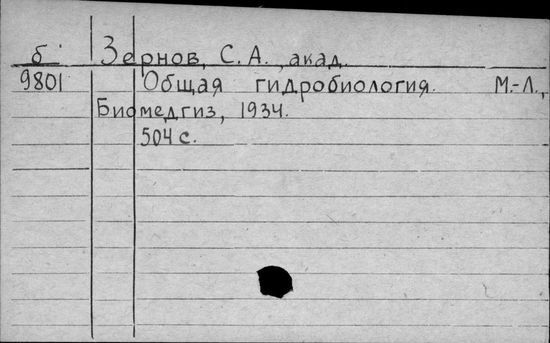 б Зернов, С. А., акад.
9801 Общая гидробиология. М.-Л.,
Биомедгиз, 1934.
504 с.